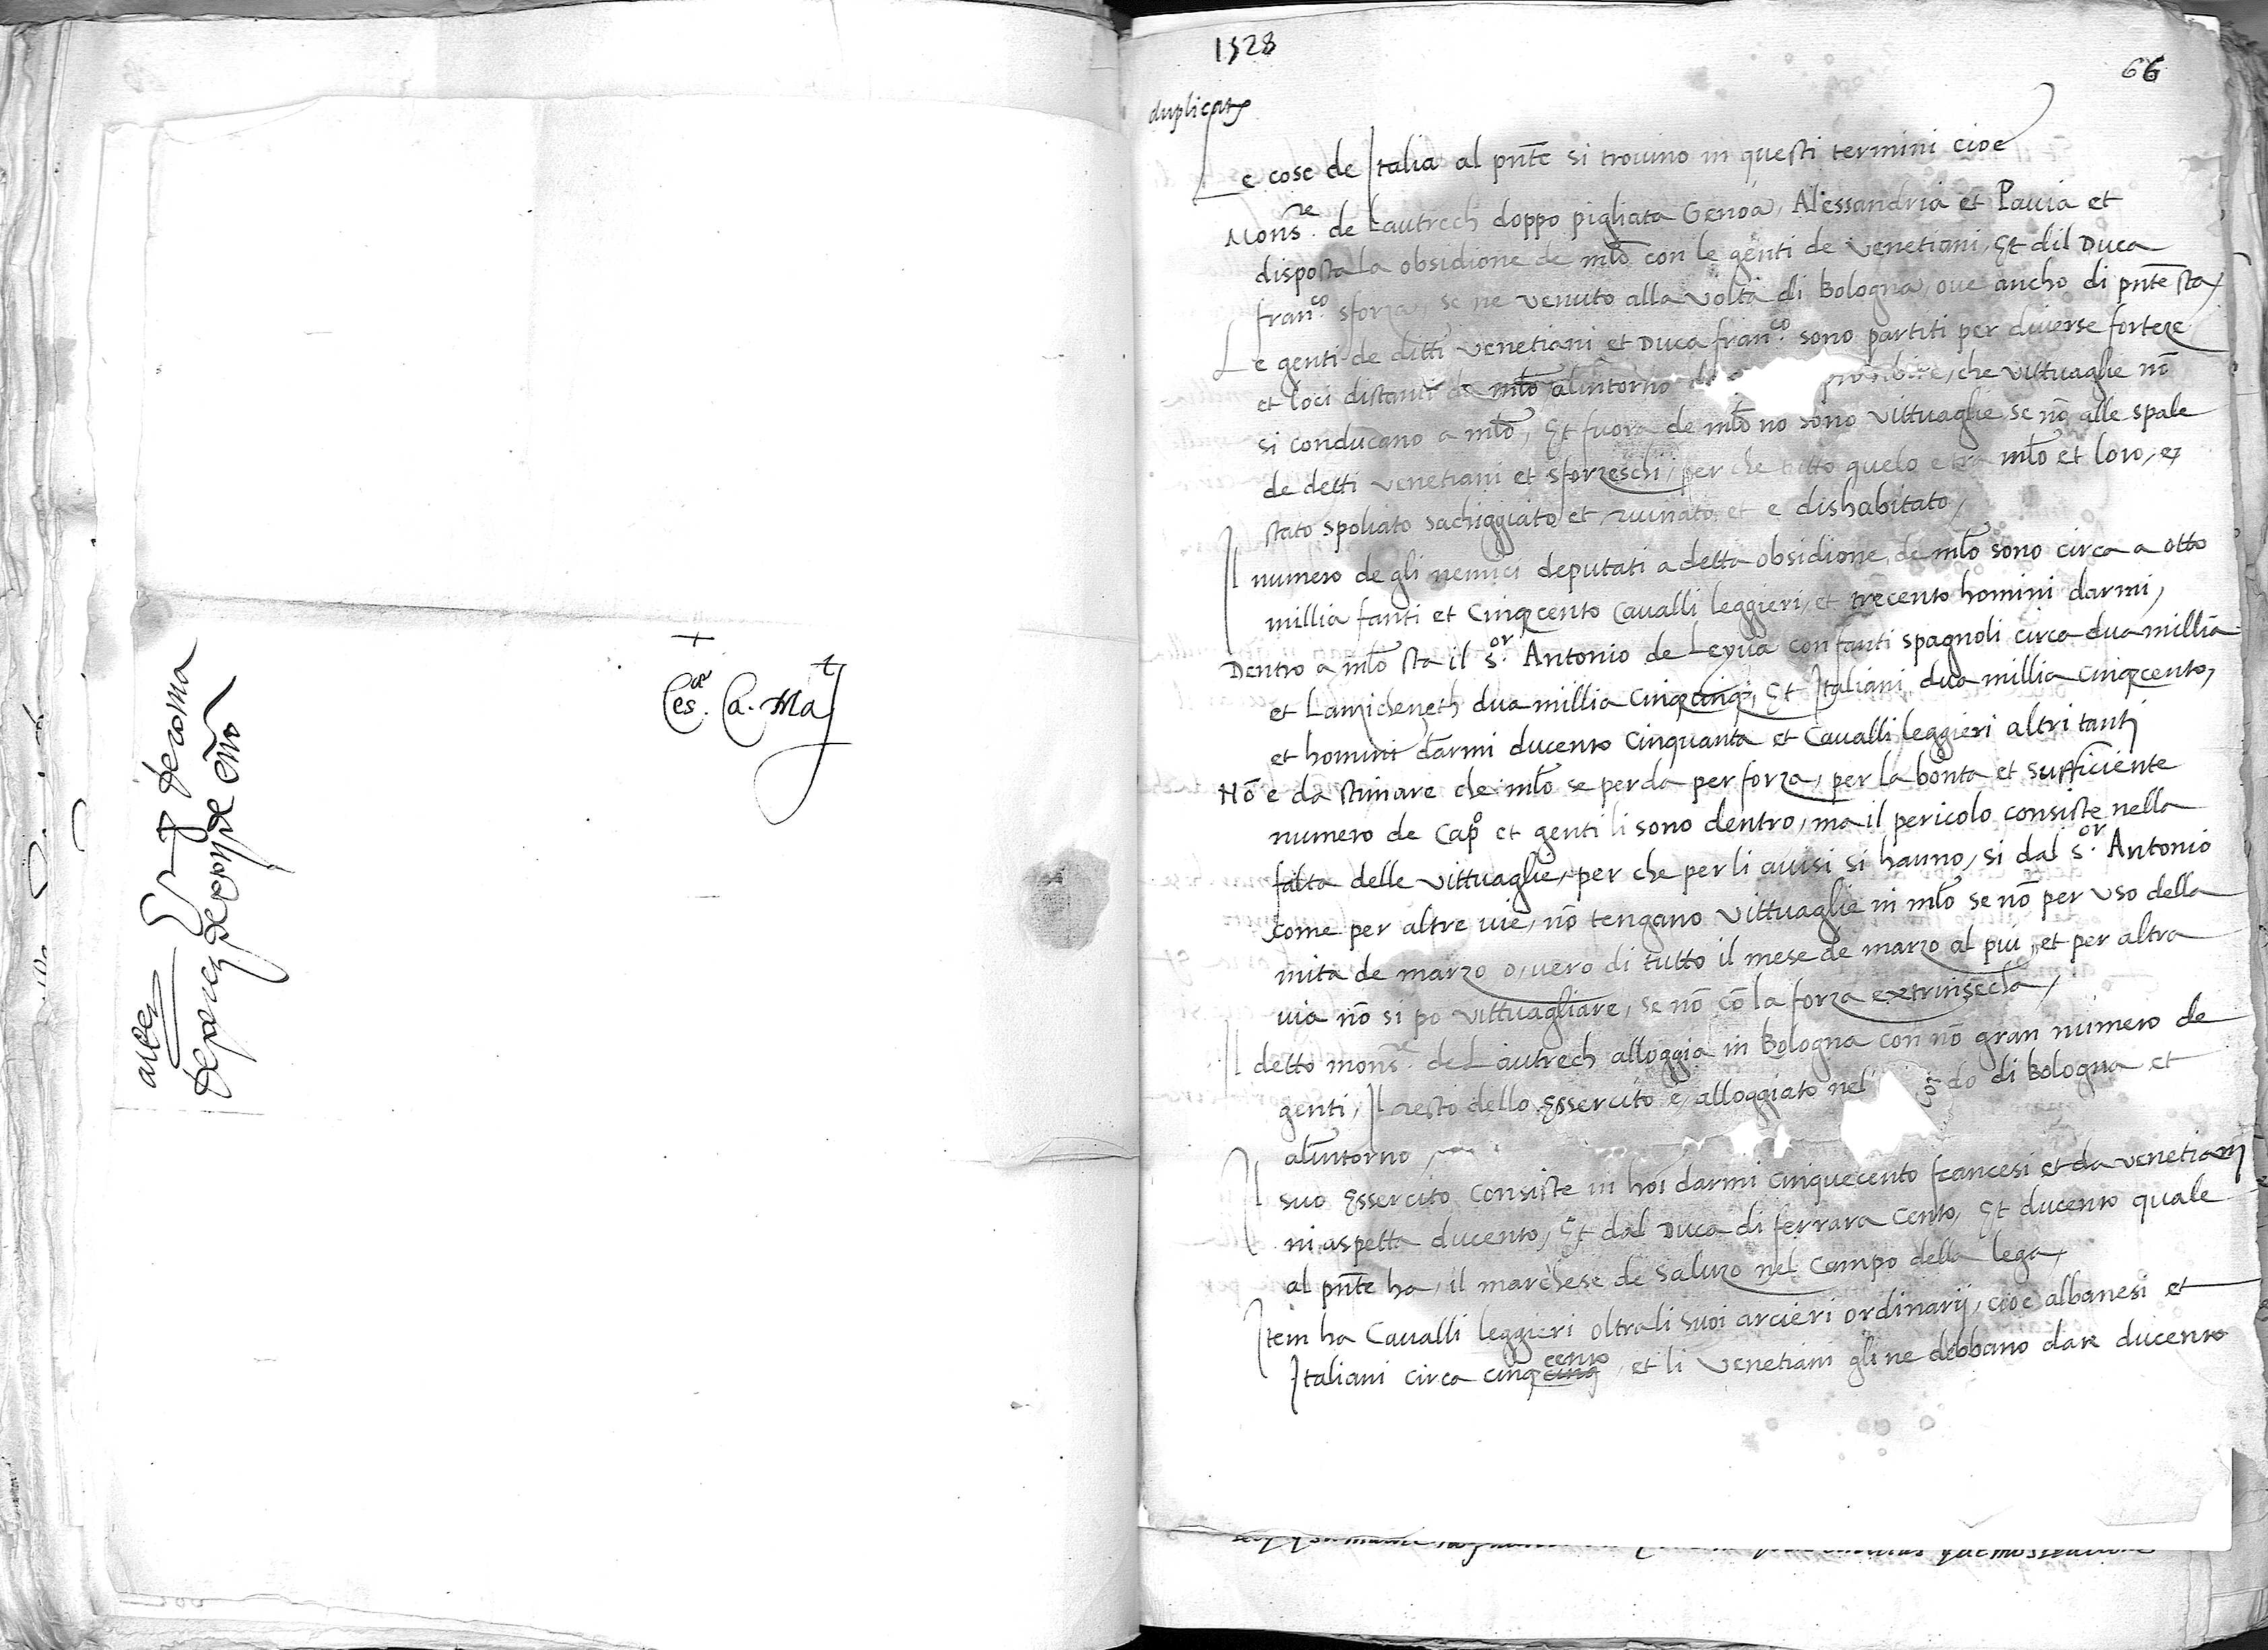 +
Ces.ar Ca. Mat
1528
66
duplicata
Le cose de Italia al pnte si trovino in questi termini cioe
Mons.re de Lautrech doppo pigliata Genoa, Alessandria et Pavia et
disposta la obsidione de mlo con le genti de Venetiani, Et dil Duca
fran.co sforza, se ne venuto alla volta di Bologna, ove ancho di pnte sta,
Le genti de ditti Venetiani et Duca fran.co sono partiti per diverse forteze
et loci distanti da mlo alintorno prohibire, che vittuaglie nō
si conducano a mlo, Et fuora de mlo no sono vittuaglie, se nō alle spale
de detti venetiani et sforzeschi, per che tutto quelo e tra mlo et loro, e,
stato spoliato sachiggiato et ruinato et e dishabitato,
Il numero de gli nemici deputati a detta obsidione, de mlo sono circa a otto
millia fanti et Cinqcento Cavalli leggieri, et trecento homini darmi,
Dentro a mlo sta il S.or Antonio de Leyva con fanti spagnoli circa dua millia
et Lamicheneth dua millia Cinqcinq, Et Italiani dua millia cinqcento,
et homini darmi ducento Cinquanta et Cavalli leggieri altri tanti
Nō e da stimare che mlo se perda per forza, per la bonta et sufficiente
numero de Capi et genti li sono dentro, ma il pericolo consiste nella
falta delle vittuaglie, per che per li avisi si hanno, si dal S.or Antonio
come per altre vie, nō tengano vittuaglie in mlo se nō per uso della
mita de marzo o, vero di tutto il mese de marzo al piu, et per altra
via nō si po vittuagliare, se nō cō la forza extrinsecha,
Il detto mons.re de Lautrech alloggia in Bologna con nō gran numero de
genti, Il resto dello Essercito e, alloggiato nel do di Bologna et
alintorno
Il suo Essercito Consiste in hoi darmi cinquecento francesi et da venetiani
ni aspetta ducento, Et dal Duca di ferrara Cento, Et ducento quale
al pnte ha, il marchese de Saluzo nel Campo della lega,
Item ha Cavalli leggieri oltra li suoi arcieri ordinarij, cioe albanesi et
Italiani circa cinqcento, et li Venetiani gli ne debbano dare ducento